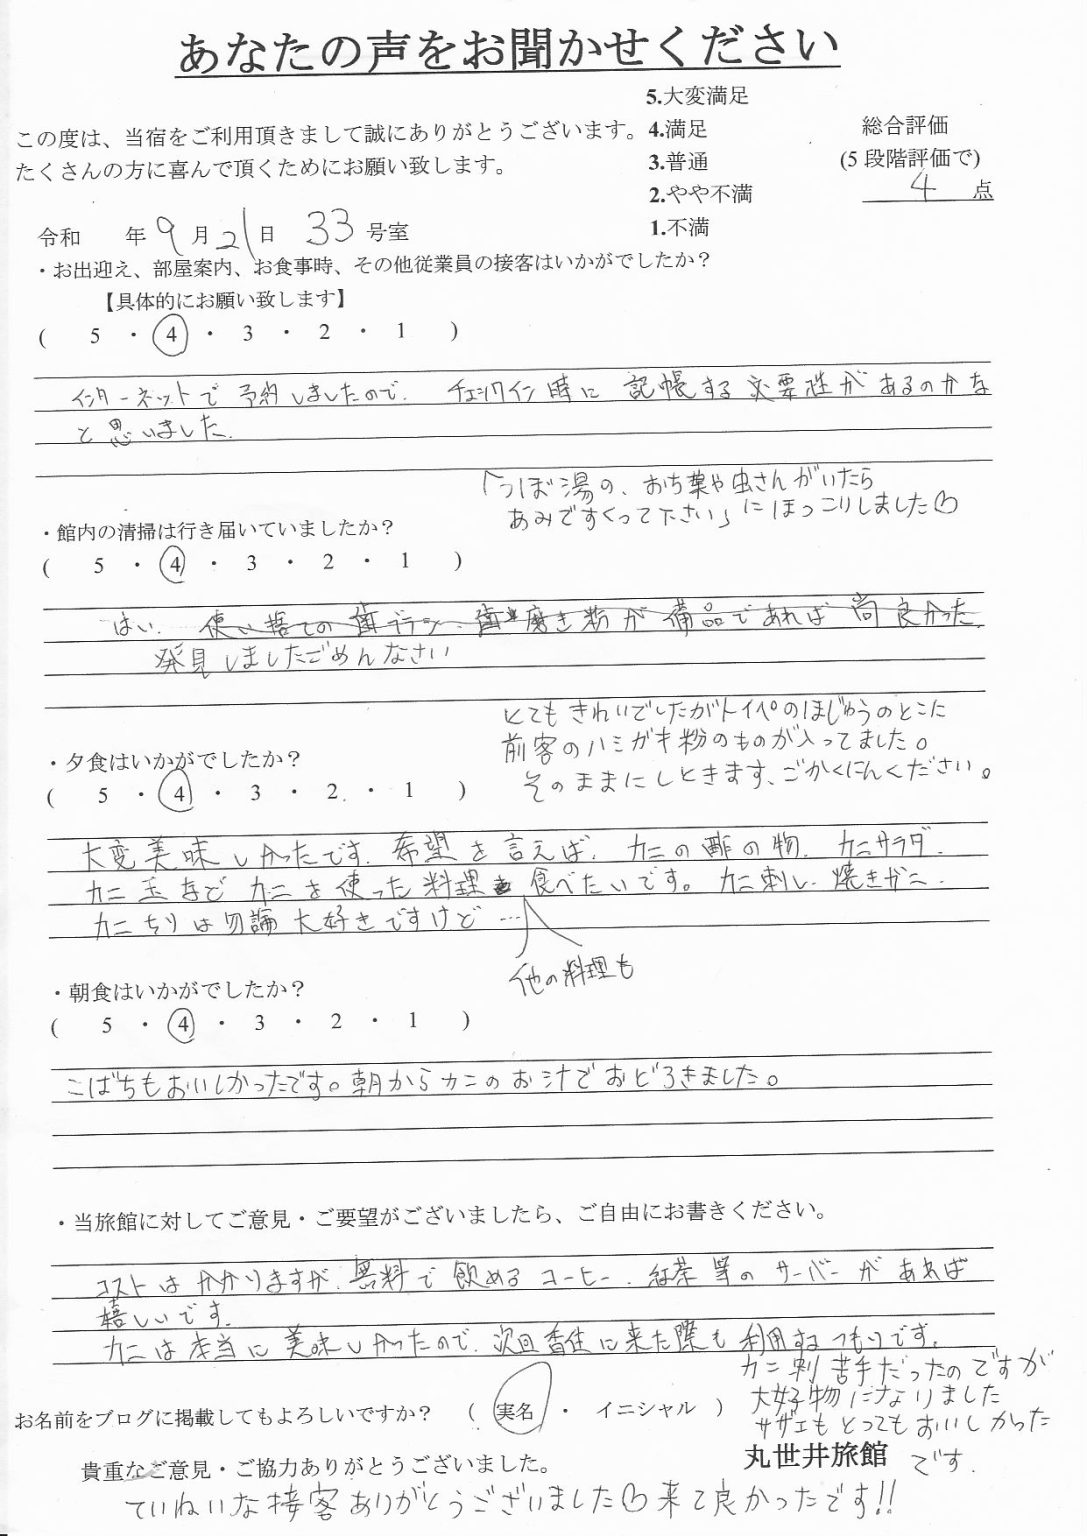 あなたの声をお聞かせください
5.大変満足
この度は、当宿をご利用頂きまして誠にありがとうございます。 4.満足 総合評価
たくさんの方に喜んで頂くためにお願い致します。 3.普通 (5段階評価で)
2.やや不満 4 点
令和 年 9 月 21 日 33 号室 1.不満
・お出迎え、部屋案内、お食事時、その他従業員の接客はいかがでしたか？
【具体的にお願い致します】
( 5 ・ 4 ・ 3 ・ 2 ・ 1 )
インターネットで予約しましたので、チェックイン時に記帳する必要性があるのかな
と思いました。
「つぼ湯の、おち葉や虫さんがいたら
あみですくって下さい」にほっこりしました♡
・館内の清掃は行き届いていましたか？
( 5 ・ 4 ・ 3 ・ 2 ・ 1 )
はい、使い捨ての歯ブラシ、歯磨き粉が備品であれば尚良かった。
発見しましたごめんなさい
とてもきれいでしたがトイペのほじゅうのとこに
前客のハミガキ粉のものが入ってました。
そのままにしときます、ごかくにんください。
・夕食はいかがでしたか？
( 5 ・ 4 ・ 3 ・ 2 ・ 1 )
大変美味しかったです。希望を言えば、カニの酢の物、カニサラダ、
カニ玉などカニを使った料理 食べたいです。カニ刺し、焼きガニ、
カニちりは勿論大好きですけど…
他の料理も
・朝食はいかがでしたか？
( 5 ・ 4 ・ 3 ・ 2 ・ 1 )
こばちもおいしかったです。朝からカニのお汁でおどろきました。
・当旅館に対してご意見・ご要望がございましたら、ご自由にお書きください。
コストはかかりますが、無料で飲めるコーヒー、紅茶等のサーバーがあれば
嬉しいです。
カニは本当に美味しかったので、次回香住に来た際も利用するつもりです。
カニ刺苦手だったのですが
大好物になりました
お名前をブログに掲載してもよろしいですか？ ( 実名 ・ イニシャル )
サザエもとってもおいしかった
です。
丸世井旅館
貴重なご意見・ご協力ありがとうございました。
ていねいな接客ありがとうございました♡来て良かったです!!